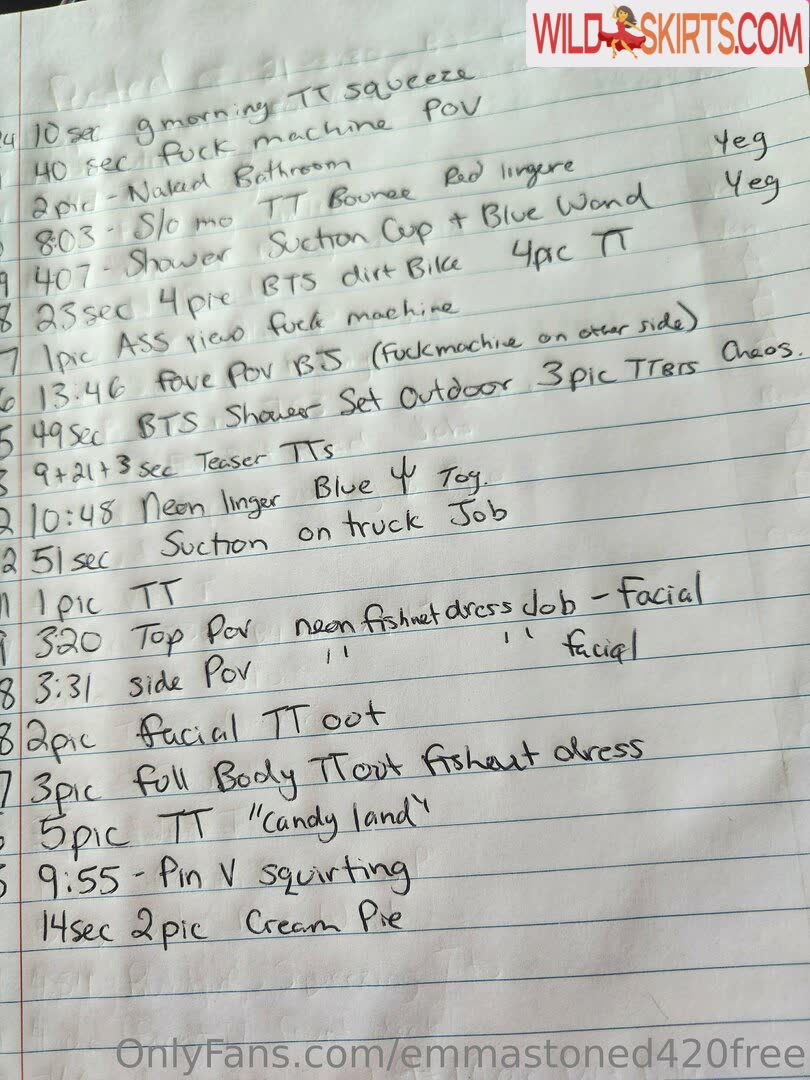 WILDSKIRTS.COM
4 10 sec gmorning TT squeeze
40 sec fuck machine POV
2pic - Naked Bathroom Yeg
8:03 - Slo mo TT Bounce Red lingere Yeg
9 407 - Shower Suction Cup + Blue Wand
8 23sec 4pic BTS dirt Bike 4pic TT
7 1pic ASS view fuck machine
6 13:46 fave POV BJ (Fuckmachine on other side)
5 49sec BTS Shower Set Outdoor 3pic TTBTS Chaos.
3 9+21+3 sec Teaser TTs
2 10:48 Neon linger Blue Toy.
2 51sec Suction on truck Job
1 1pic TT
320 Top Pov neon fishnet dress Job - Facial
8 3:31 side Pov " " facial
8 2pic facial TT oot
7 3pic full Body TT out fishnet dress
5pic TT "Candy land"
5 9:55 - Pin V squirting
14sec 2pic Cream Pie
OnlyFans.com/emmastoned420free